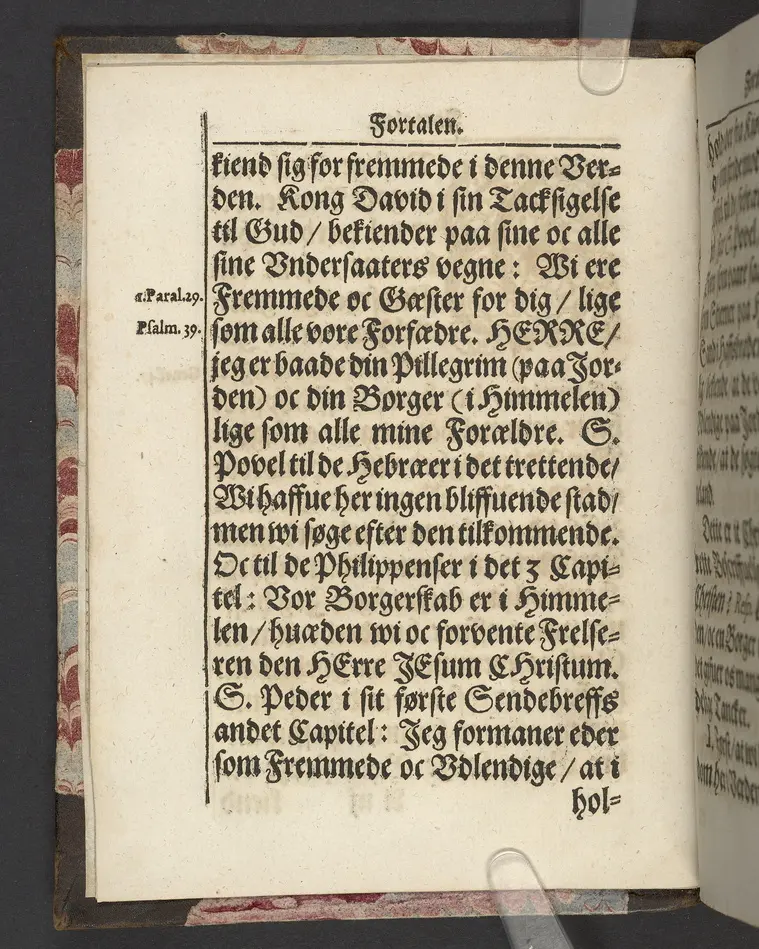 Fortalen.
kiend sig for fremmede i denne Ver=
den. Kong David i sin Tacksigelse
til Gud / bekiender paa sine oc alle
sine Vndersaaters vegne: Wi ere
1. Paral. 29. Fremmede oc Gæster for dig / lige
Psalm. 39. som alle vore Forfædre. HERRE /
jeg er baade din Pillegrim (paa Jor=
den) oc din Borger (i Himmelen)
lige som alle mine Forældre. S.
Povel til de Hebræer i det trettende /
Wi haffue her ingen bliffuende stad /
men wi søge efter den tilkommende.
Oc til de Philippenser i det 3 Capi=
tel: Vor Borgerskab er i Himme=
len / huæden wi oc forvente Frelse=
ren den HErre JEsum CHristum.
S. Peder i sit første Sendebreffs
andet Capitel: Jeg formaner eder
som Fremmede oc Vdlendige / at i
hol=